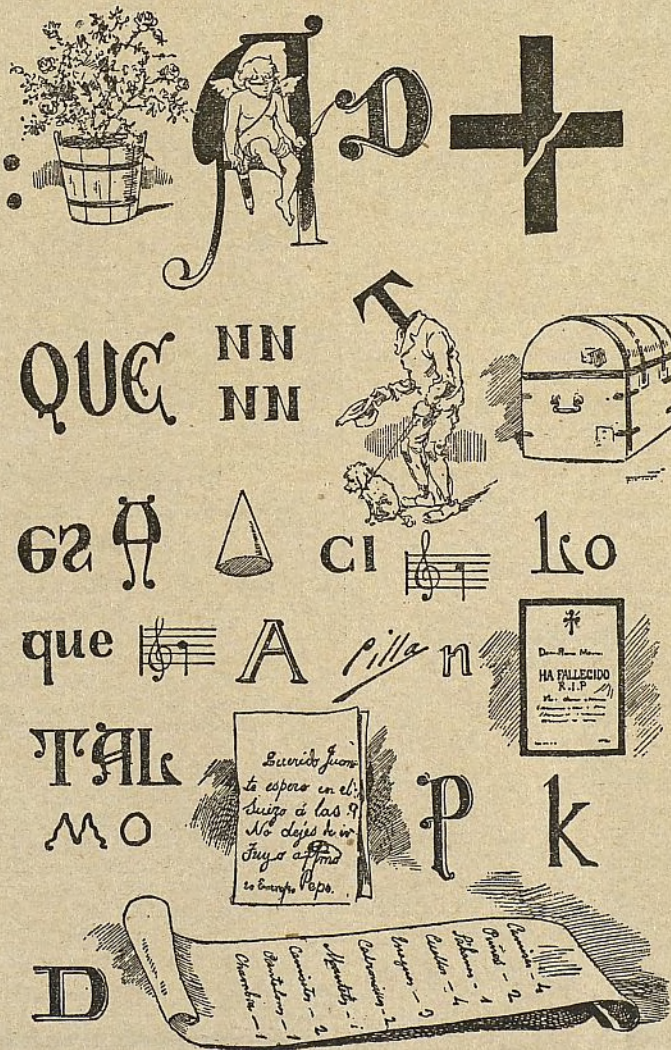 A D
QUE NN
NN
T
ES A CI LO
que A Pilla n
HA FALLECIDO
R.I.P
TAL
MO
Querido Juan
te espero en el
Suizo á las 9
No dejes de ir
Tuyo affmo
Pepe.
P k
D
Camisas - 4
Puños - 2
Sábanas - 1
Cuellos - 4
Enaguas - 3
Calzoncillos - 2
Manteles - 1
Camisetas - 2
Pantalones - 1
Chambra - 1